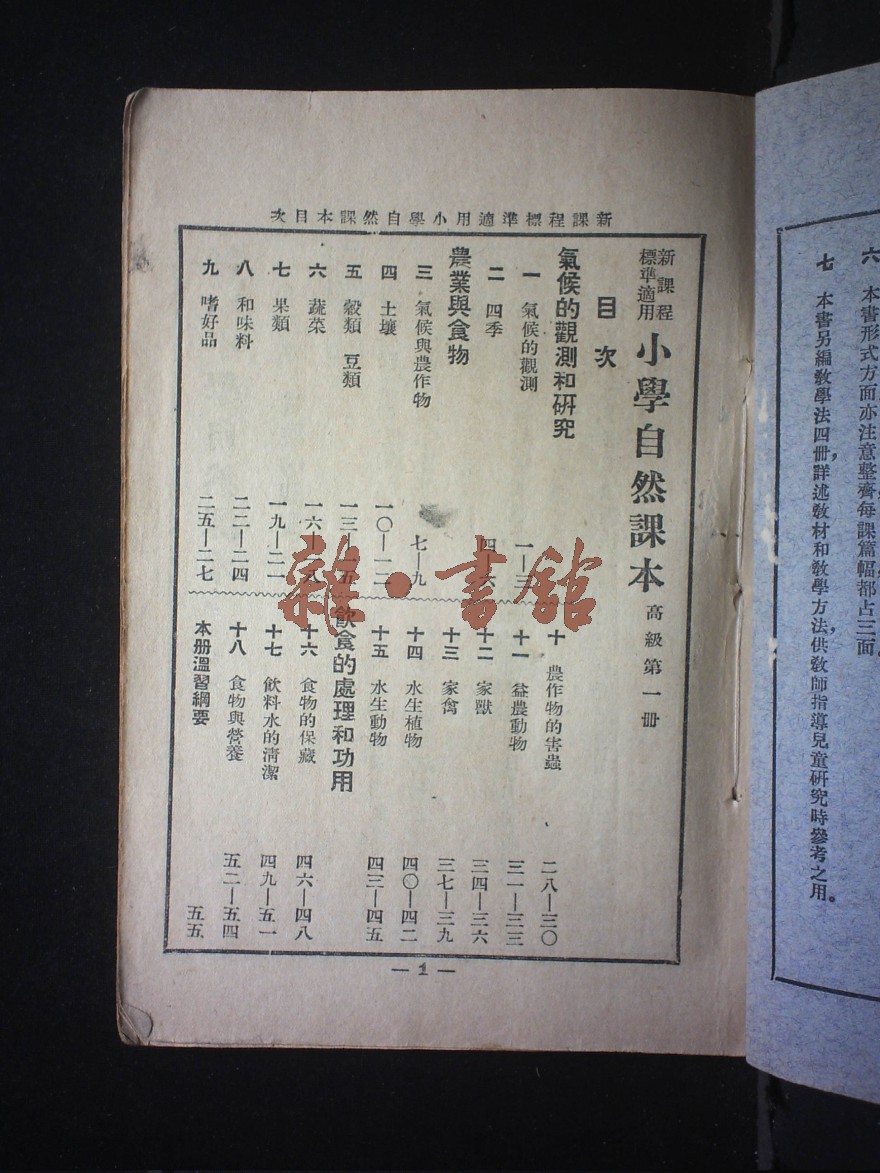 六 本書形式方面亦注意整齊每課篇幅都占三面。
七 本書另編教學法四冊，詳述教材和教學方法，供教師指導兒童研究時參考之用。
新課程標準適用小學自然課本目次
新課程標準適用 小學自然課本 高級第一冊
目次
氣候的觀測和研究
一 氣候的觀測 一—三
二 四季 四—六
農業與食物
三 氣候與農作物 七—九
四 土壤 一〇—一二
五 穀類 豆類 一三—一五
六 蔬菜 一六—一八
七 果類 一九—二一
八 和味料 二二—二四
九 嗜好品 二五—二七
十 農作物的害蟲 二八—三〇
十一 益農動物 三一—三三
十二 家獸 三四—三六
十三 家禽 三七—三九
十四 水生植物 四〇—四二
十五 水生動物 四三—四五
飲食的處理和功用
十六 食物的保藏 四六—四八
十七 飲料水的清潔 四九—五一
十八 食物與營養 五二—五四
本册溫習綱要 五五
— 1 —
雜·書館